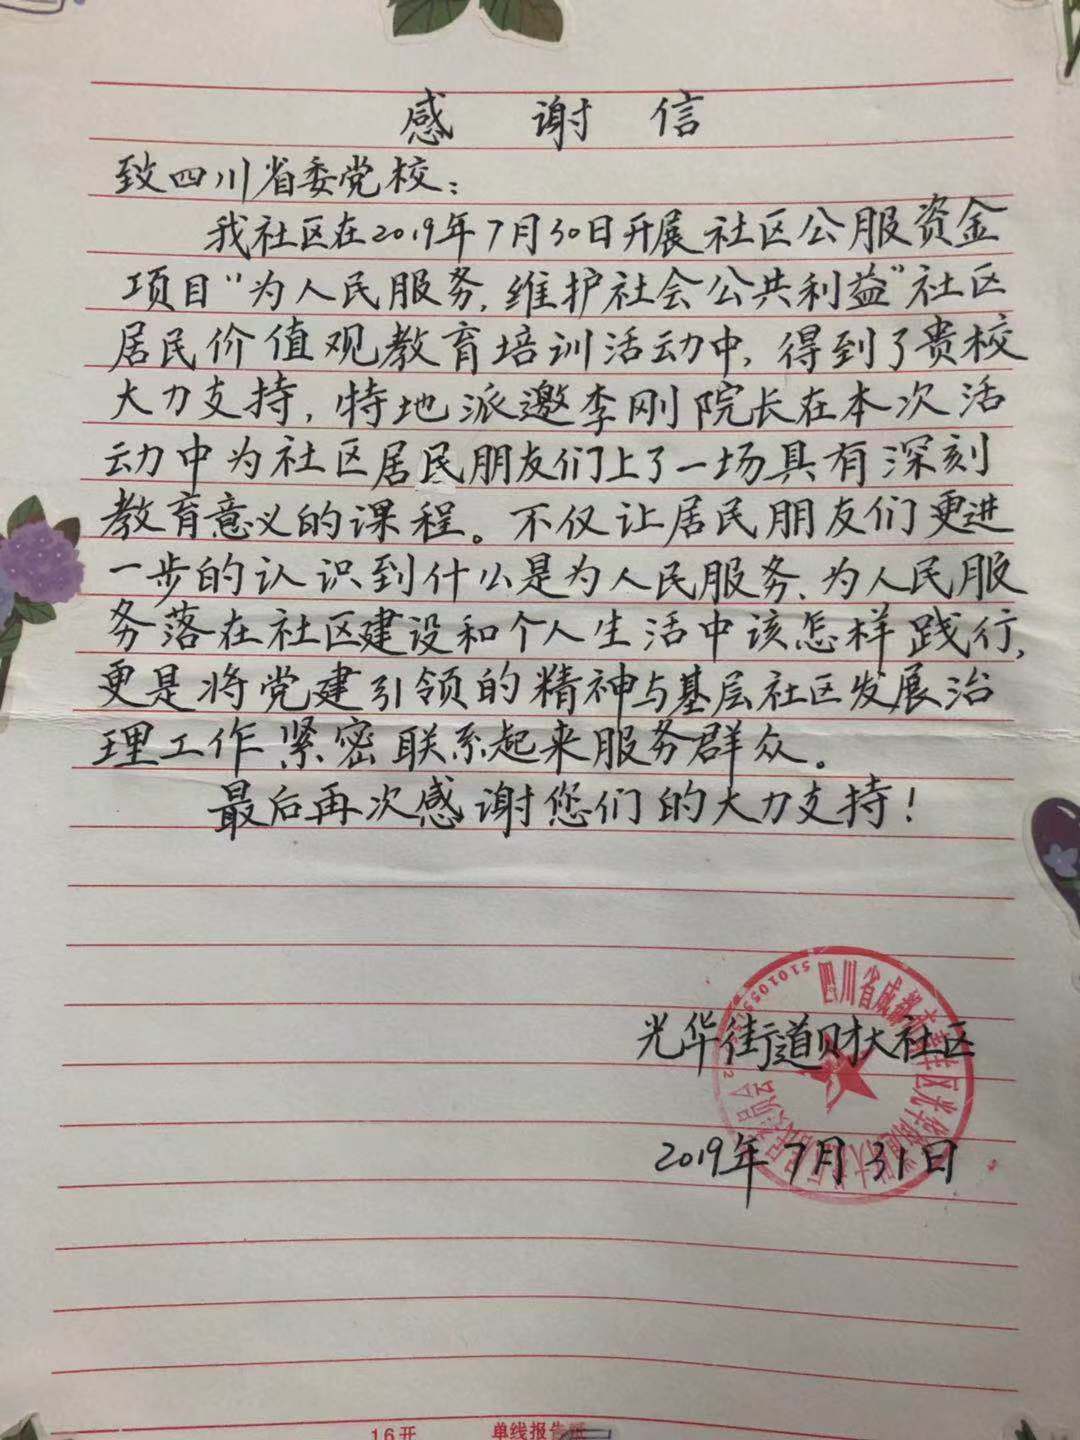 感谢信
致四川省委党校：
我社区在2019年7月30日开展社区公服资金
项目“为人民服务，维护社会公共利益”社区
居民价值观教育培训活动中，得到了贵校
大力支持，特地派邀李刚院长在本次活
动中为社区居民朋友们上了一场具有深刻
教育意义的课程。不仅让居民朋友们更进
一步的认识到什么是为人民服务、为人民服
务落在社区建设和个人生活中该怎样践行，
更是将党建引领的精神与基层社区发展治
理工作紧密联系起来服务群众。
最后再次感谢您们的大力支持！
四川省成都市
光华街道财大社区
2019年7月31日
16开 单线报告纸